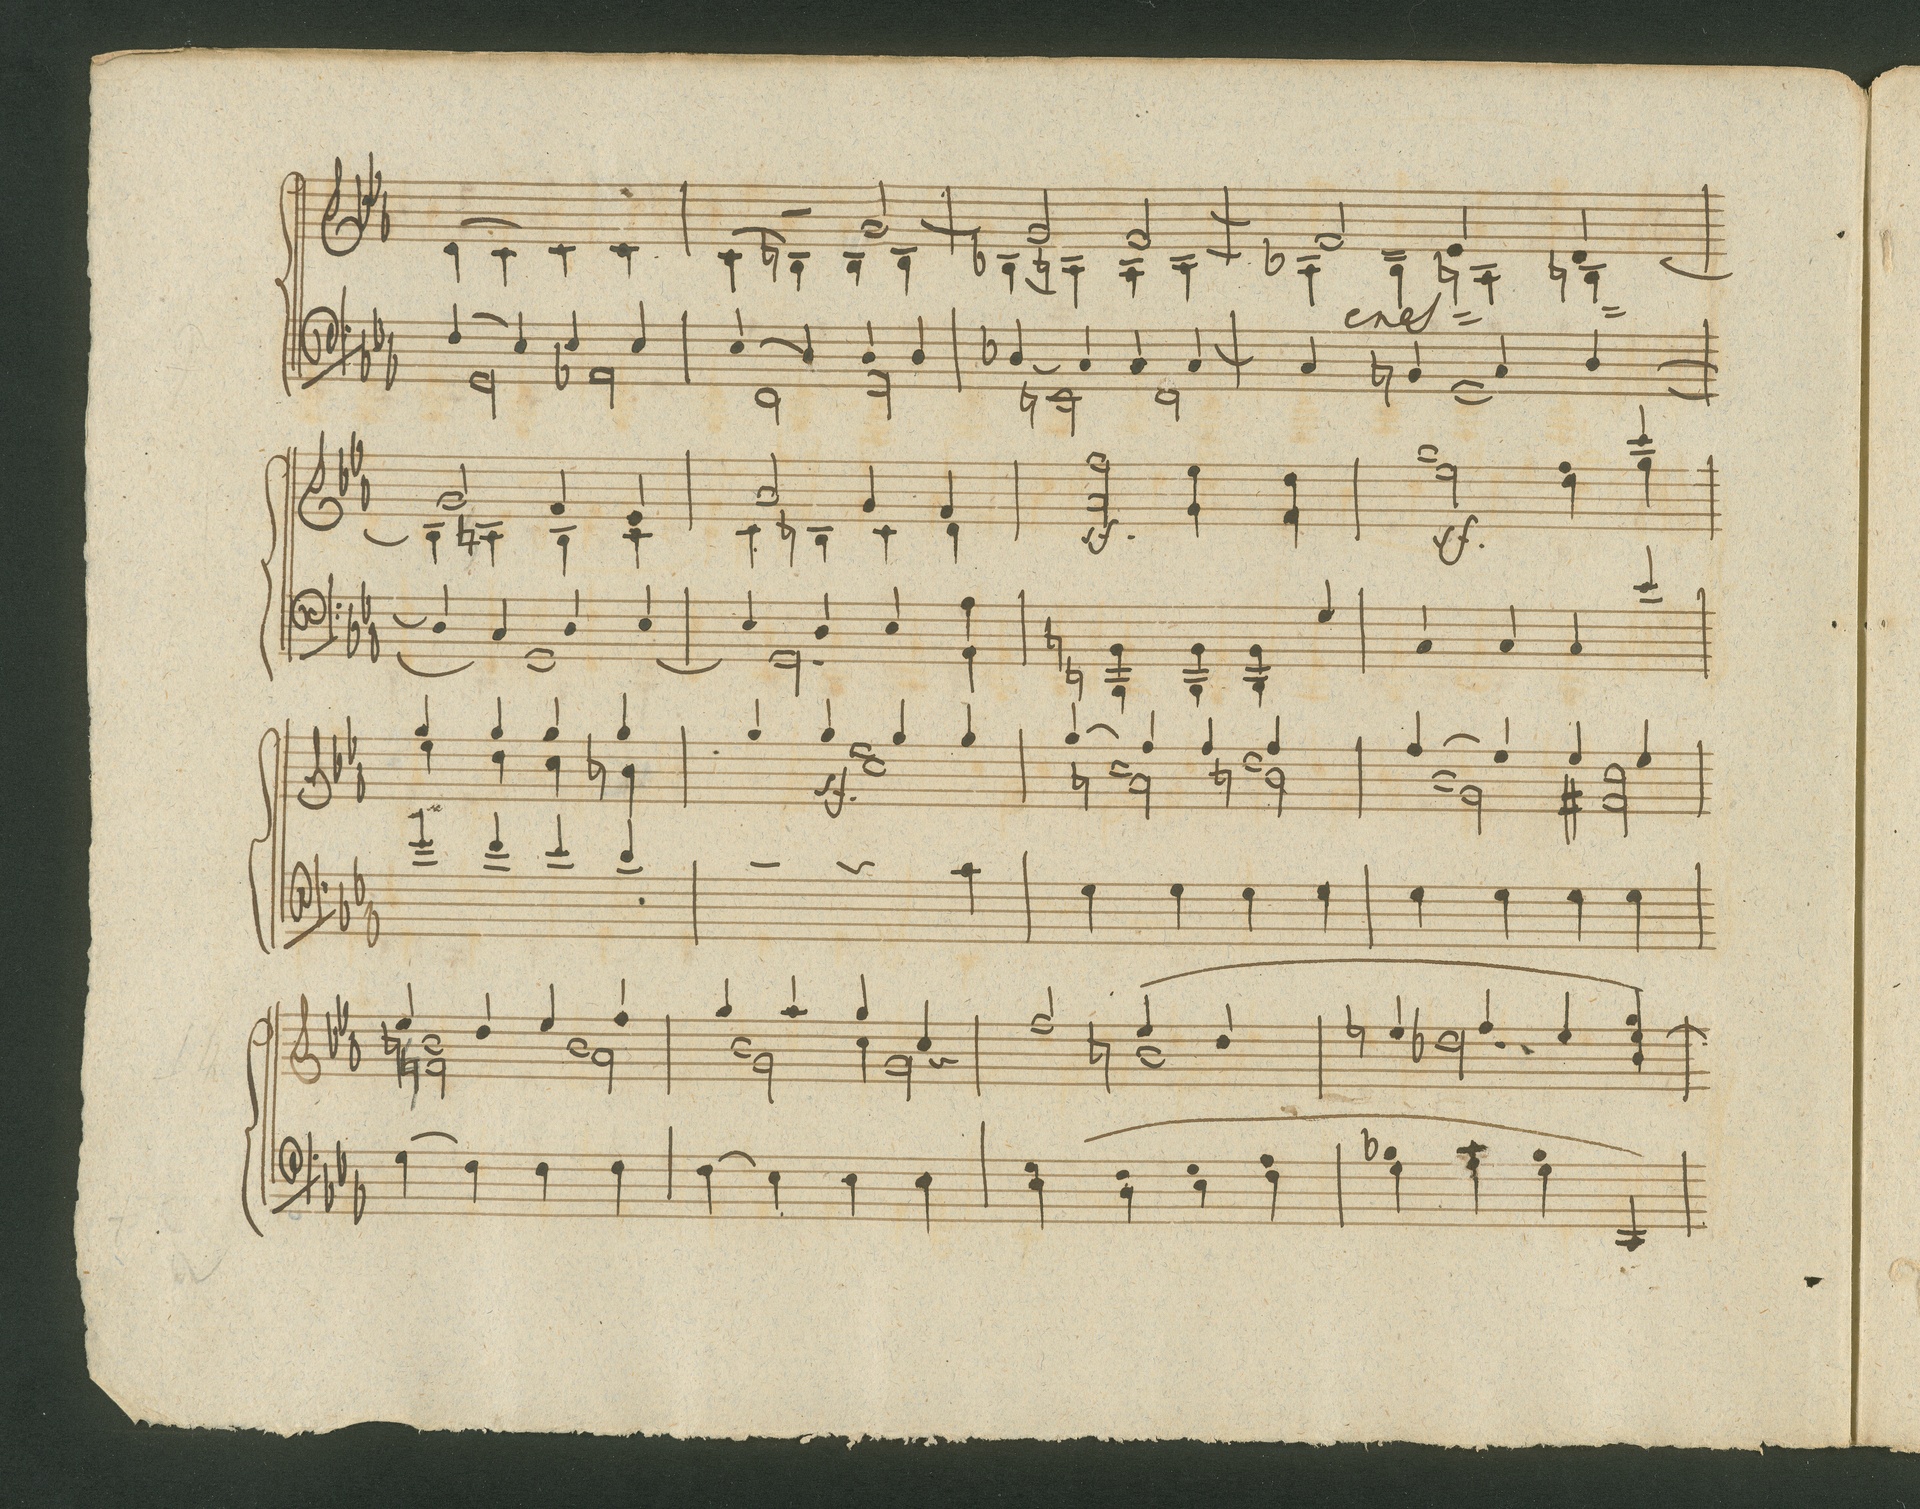 cres = =
sf. sf.
sf.